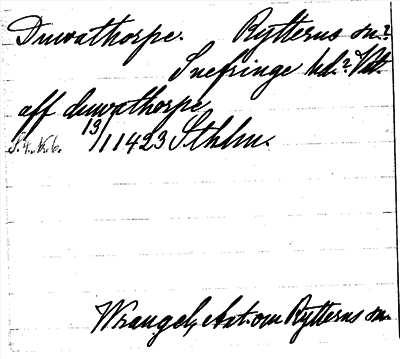 Duwathorpe. Rytterns sn.?
Snefringe hd.? Vstl.
aff duwathorpe
13/11 1423 Sthlm.
Wrangel, Ant. om Rytterns sn.